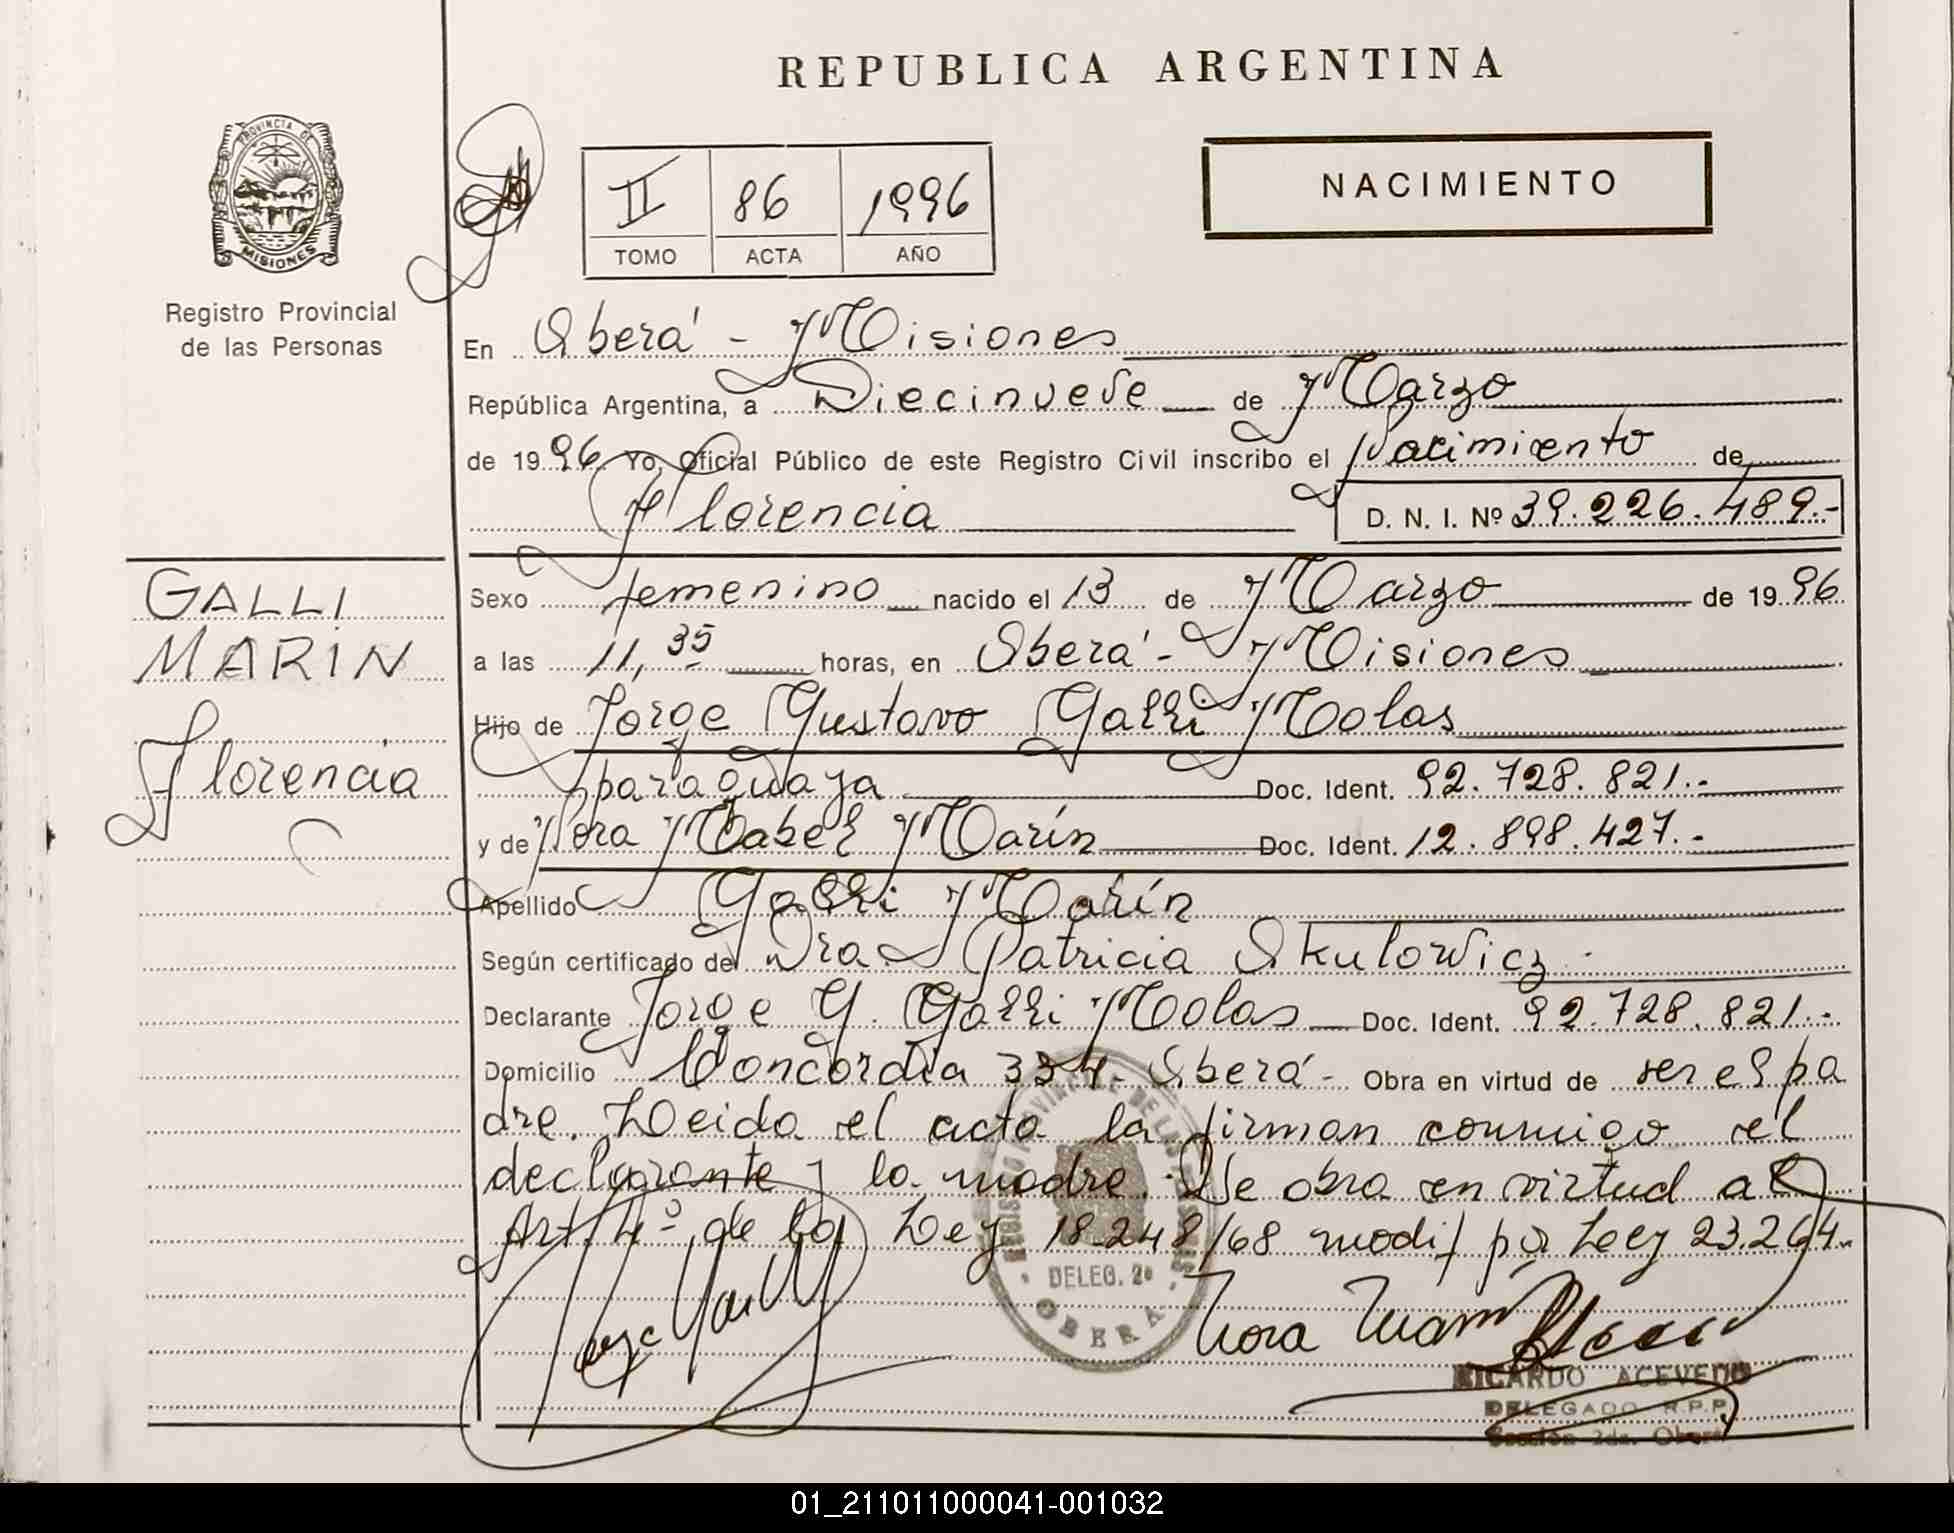 REPUBLICA ARGENTINA
PROVINCIA DE
MISIONES
Registro Provincial
de las Personas
II 86 1996
TOMO ACTA AÑO
NACIMIENTO
En Oberá - Misiones
República Argentina, a Diecinueve de Marzo
de 1996 Yo, Oficial Público de este Registro Civil inscribo el Nacimiento de
Florencia D. N. I. Nº 39.226.489.-
GALLI
MARIN
Florencia
Sexo femenino nacido el 13 de Marzo de 1996
a las 11,35 horas, en Oberá - Misiones
Hijo de Jorge Gustavo Galli Molas
paraguaya Doc. Ident. 92.728.821.-
y de Nora Mabel Marín Doc. Ident. 12.898.427.-
Apellido Galli Marín
Según certificado de Dra Patricia Skulowicz.
Declarante Jorge G. Galli Molas Doc. Ident. 92.728.821.-
Domicilio Concordia 334 - Oberá - Obra en virtud de ser el pa
dre. Leida el acta la firman conmigo el
declarante y la madre. Se obra en virtud al
Art. 4º de la Ley 18.248/68 modif por Ley 23.264.-
REGISTRO PROVINCIAL DE LAS PERSONAS
DELEG. 2ª
OBERA
Nora Marin
RICARDO ACEVEDO
DELEGADO R.P.P.
Sección 2da. Oberá
01_211011000041-001032